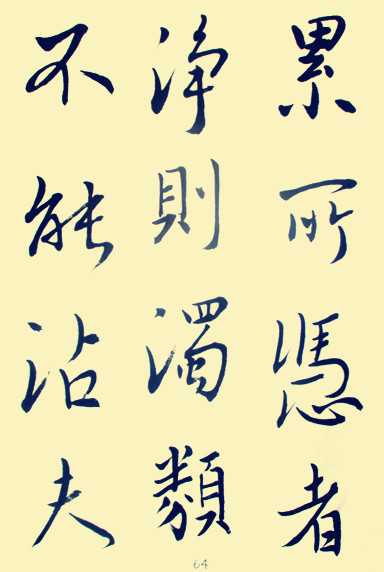 累所憑者
淨則濁類
不能沾夫
64